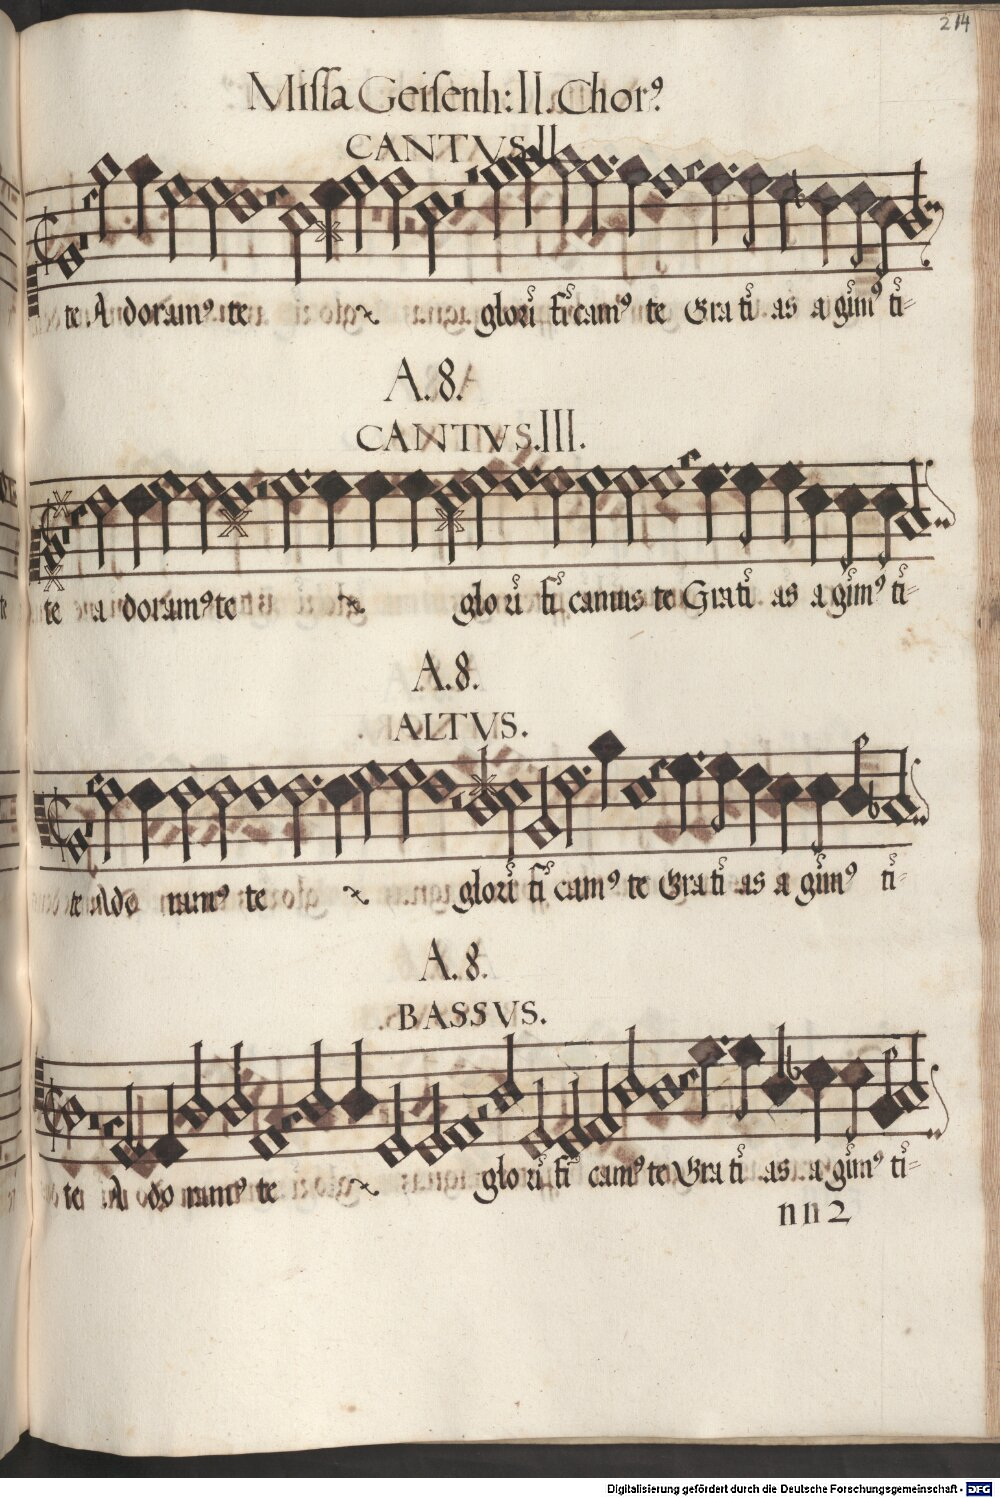 214
Missa Geisenh: II. Chorꝰ
CANTVS. II.
te Adoramꝰ te glorifi camꝰ te Grati as a gimꝰ ti-
A. 8.
CANTVS. III.
te a doramꝰ te glo ri fi camus te Grati as a gimꝰ ti-
A. 8.
ALTVS.
te Ado ramꝰ te glori fi camꝰ te Grati as a gimꝰ ti-
A. 8.
BASSVS.
te A do ramꝰ te glo ri fi camꝰ te Gra ti as a gimꝰ ti-
nn2
Digitalisierung gefördert durch die Deutsche Forschungsgemeinschaft - DFG